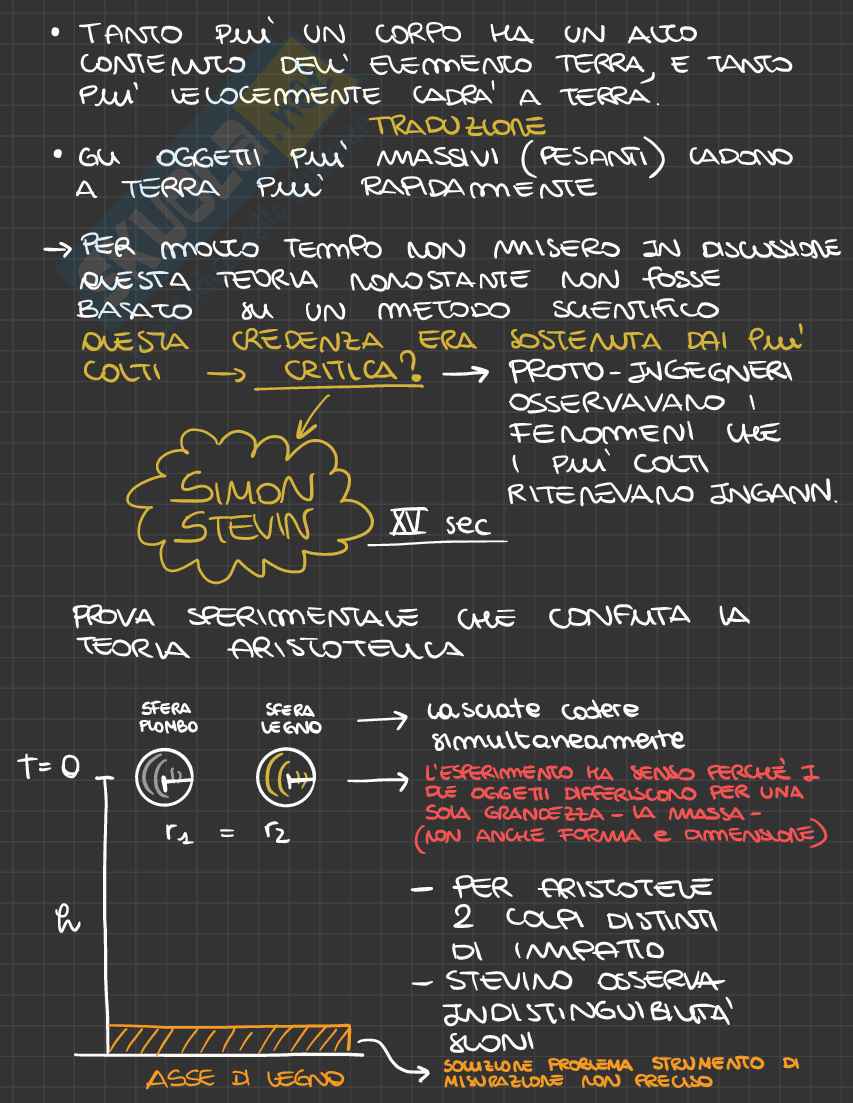 • TANTO PIÙ UN CORPO HA UN ALTO
CONTENUTO DELL'ELEMENTO TERRA, E TANTO
PIÙ VELOCEMENTE CADRÀ A TERRA.
TRADUZIONE
• GLI OGGETTI PIÙ MASSIVI (PESANTI) CADONO
A TERRA PIÙ RAPIDAMENTE
→ PER MOLTO TEMPO NON MISERO IN DISCUSSIONE
QUESTA TEORIA NONOSTANTE NON FOSSE
BASATO SU UN METODO SCIENTIFICO
QUESTA CREDENZA ERA SOSTENUTA DAI PIÙ
COLTI → CRITICA? → PROTO-INGEGNERI
OSSERVAVANO I
FENOMENI CHE
I PIÙ COLTI
RITENEVANO INGANN.
SIMON
STEVIN
XV sec
PROVA SPERIMENTALE CHE CONFUTA LA
TEORIA ARISTOTELICA
SFERA
PIOMBO
SFERA
LEGNO
→ lasciate cadere
simultaneamente
T=0
→ L'ESPERIMENTO HA SENSO PERCHÈ I
DUE OGGETTI DIFFERISCONO PER UNA
SOLA GRANDEZZA - LA MASSA -
(NON ANCHE FORMA e DIMENSIONE)
r1 = r2
h
- PER ARISTOTELE
2 COLPI DISTINTI
DI IMPATTO
- STEVINO OSSERVA
INDISTINGUIBILITÀ
SUONI
ASSE DI LEGNO
→ SOLUZIONE PROBLEMA STRUMENTO DI
MISURAZIONE NON PRECISO